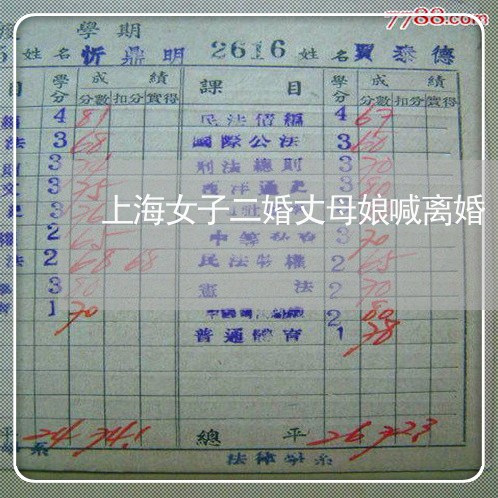 7788.com
學期
姓名 忻鼎明 2616 姓名 賈泰德
目 學分 成績 課目 學分 成績
分數 扣分 實得 分數 扣分 實得
4 81 民法債編 4 67
法 3 68 國際公法 3 60
3 刑法總則 3 70
3 75 西洋通史 3 80
上海女子二婚丈母娘喊离婚
2 65 3 70
法 2 68 68 民法物權 2 65
3 80 憲法 2 70
1 70 2 80
普通體育 1 78
平 24 74.1 總平 26 72.3
系 法律學系